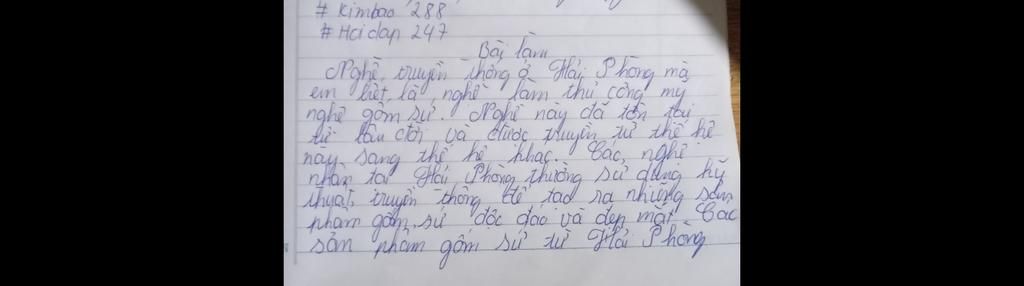 # Kimbao 288
# Hoidap 247
Bài làm
Nghề truyền thống ở Hải Phòng mà
em biết là nghề làm thủ công mỹ
nghệ gốm sứ. Nghề này đã tồn tại
từ lâu đời và được truyền từ thế hệ
này sang thế hệ khác. Các nghệ
nhân tại Hải Phòng thường sử dụng kỹ
thuật truyền thống để tạo ra những sản
phẩm gốm sứ độc đáo và đẹp mắt. Các
sản phẩm gốm sứ từ Hải Phòng